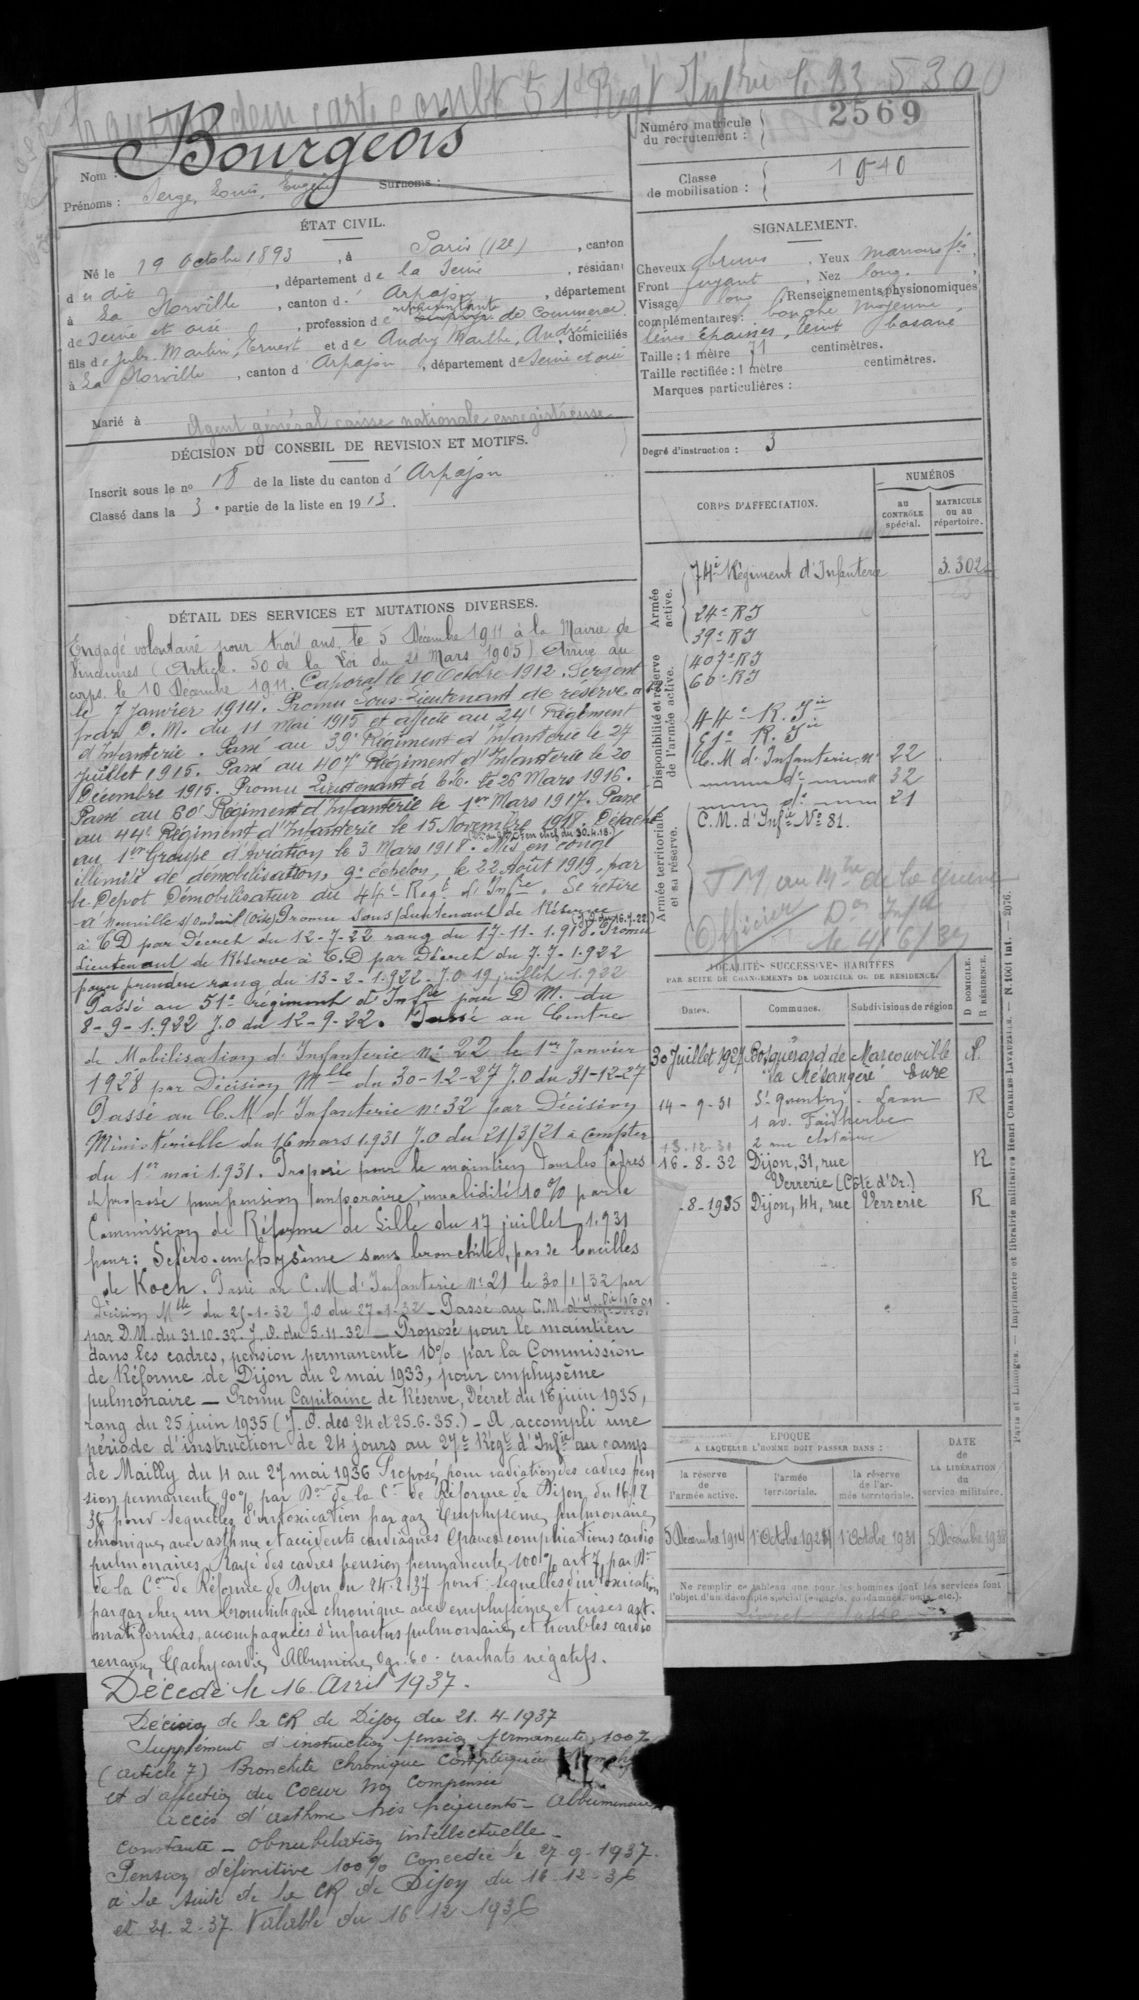 carte comb 51e Regt Infrie le 23 5 30
Bourgeois
Nom :
Prénoms : Serge, Louis, Eugène
Surnoms :
Numéro matricule
du recrutement :
2569
Classe
de mobilisation :
1910
ÉTAT CIVIL.
Né le 19 Octobre 1893, à Paris (12e), canton
du dit, département de la Seine, résidant
à La Norville, canton d' Arpajon, département
de Seine et oise, profession de représentant de commerce
fils de feu Martin, Ernest et de Audry Marthe, Andrée, domiciliés
à La Norville, canton d Arpajon, département de Seine et oise
Marié à
Agent général caisse nationale enregistreuse
SIGNALEMENT.
Cheveux bruns. Yeux marrons fés,
Front fuyant. Nez long.
Visage long. Renseignements physionomiques
complémentaires : bouche moyenne
lèvres épaisses, teint basané
Taille : 1 mètre 71 centimètres.
Taille rectifiée : 1 mètre centimètres.
Marques particulières :
Degré d'instruction : 3
DÉCISION DU CONSEIL DE REVISION ET MOTIFS.
Inscrit sous le no 18 de la liste du canton d' Arpajon
Classé dans la 3e partie de la liste en 1913.
DÉTAIL DES SERVICES ET MUTATIONS DIVERSES.
Engagé volontaire pour trois ans le 5 Décembre 1911 à la Mairie de
Vincennes (Article 50 de la Loi du 21 Mars 1905) Arrivé au
corps le 10 Décembre 1911. Caporal le 10 Octobre 1912. Sergent
le 7 Janvier 1914. Promu Sous-Lieutenant de réserve
par D.M. du 11 mai 1915 et affecté au 24e Régiment
d'Infanterie. Passé au 39e Régiment d'Infanterie le 24
Juillet 1915. Passé au 407e Régiment d'Infanterie le 20
Décembre 1915. Promu Lieutenant à t.t. le 26 Mars 1916.
Passé au 60e Régiment d'Infanterie le 1er Mars 1917. Passé
au 44e Régiment d'Infanterie le 15 Novembre 1918. Détaché
au 1er Groupe d'Aviation le 3 Mars 1918. Mis en congé
illimité de démobilisation, 9e échelon, le 22 Août 1919, par
le Dépôt Démobilisateur du 44e Regt d'Infie. Se retire
à Neuville s/ (Oise) Promu sous lieutenant de Réserve
à TD par Décret du 12-7-22 rang du 17-11-1918. Promu
Lieutenant de Réserve à T.D par Décret du 7-7-1922
pour prendre rang du 13-2-1922 J.O 19 juillet 1922
Passé au 51e régiment d'Infie pour D M. du
8-9-1922 J.O du 12-9-22. Passé au Centre
de Mobilisation d'Infanterie no 22 le 1er Janvier
1928 par Décision Mlle du 30-12-27 J.O du 31-12-27
Passé au C.M. d'Infanterie no 32 par Décision
Ministérielle du 16 mars 1931 J.O du 21/3/21 à compter
du 1er mai 1931. Proposé pour le maintien dans les Cadres
et proposé pour pension temporaire, invalidité 10% par la
Commission de Réforme de Lille du 17 juillet 1931
pour : Scléro-emphysème sans bronchite, pas de bacilles
de Koch. Passé au C.M. d'Infanterie no 21 le 30/1/32 par
Décision Mlle du 25-1-32 J.O du 27-1-32 _ Passé au C.M. d'Infie No 81
par D.M. du 31.10.32. J.O. du 5.11.32 _ Proposé pour le maintien
dans les cadres, pension permanente 10% par la Commission
de Réforme de Dijon du 2 mai 1933, pour emphysème
pulmonaire _ Promu Capitaine de Réserve, Décret du 18 juin 1935,
rang du 25 juin 1935 (J.O. des 24 et 25.6.35.) _ A accompli une
période d'instruction de 24 jours au 27e Regt d'Infie au camp
de Mailly du 4 au 27 mai 1936 Proposé pour radiation des cadres pen
sion permanente 90% par Don de la Con de Réforme de Dijon du 16/12
36 pour Sequelles d'intoxication par gaz Emphysème pulmonaire
chronique avec asthme et accidents cardiaques Graves complications cardio
pulmonaires. Rayé des cadres pension permanente 100% art 7, par Don
de la Con de Réforme de Dijon du 24-2-37 pour : Sequelles d'intoxication
par gaz chez un bronchitique chronique avec emphysème et crises ast-
matiformes, accompagnées d'infarctus pulmonaires et troubles cardio
renaux, Tachycardie, Albumine 0gr.60. crachats négatifs.
Décédé le 16 Avril 1937.
Décision de la CR de Dijon du 21.4-1937
Supplément d'instruction pension permanente, 100%
(article 7) Bronchite chronique compliquée
et d'affection du Coeur non compensée
accès d'asthme très fréquents _ Albuminurie
constante _ obnubilation intellectuelle _
Pension définitive 100% concédée le 27-9-1937.
à la suite de la CR de Dijon du 16-12-36
et 24.2-37. Valable du 16-12 1936
CORPS D'AFFECTATION.
NUMÉROS
au
CONTRÔLE
spécial.
MATRICULE
ou au
répertoire.
Armée
active.
74e Régiment d'Infanterie
3.302
24e RI
39e RI
Disponibilité et réserve
de l'armée active.
407e RI
60e RI
44e R. Iie
51e R. Iie
C.M d'Infanterie no 22
do 32
Armée territoriale
et sa réserve.
do 21
C.M. d'Infie No 81.
Officier
le 4/6/37
LOCALITÉS SUCCESSIVES HABITÉES
PAR SUITE DE CHANGEMENTS DE DOMICILE OU DE RÉSIDENCE.
Dates.
Communes.
Subdivisions de région
D DOMICILE.
R RÉSIDENCE.
30 Juillet 1927 Bosguérard de Marcouville
"la Mésangère" Eure
14-9-31 St Quentin - Laon R
1 av. Faidherbe
13.12.31 2 rue
16-8-32 Dijon, 31, rue R
Verrerie (Côte d'Or.)
-8-1935 Dijon, 44, rue Verrerie R
ÉPOQUE
A LAQUELLE L'HOMME DOIT PASSER DANS :
DATE
DE LA LIBÉRATION
du
service militaire.
la réserve
de
l'armée active.
l'armée
territoriale.
la réserve
de l'ar-
mée territoriale.
5 Décembre 1914
1er Octobre 1924
1er Octobre 1931
5 Décembre 1938
Ne remplir ce tableau que pour les hommes dont les services font
l'objet d'un décompte spécial (engagés, condamnés, omis, etc.).
Paris et Limoges. — Imprimerie et librairie militaires Henri CHARLES-LAVAUZELLE. —